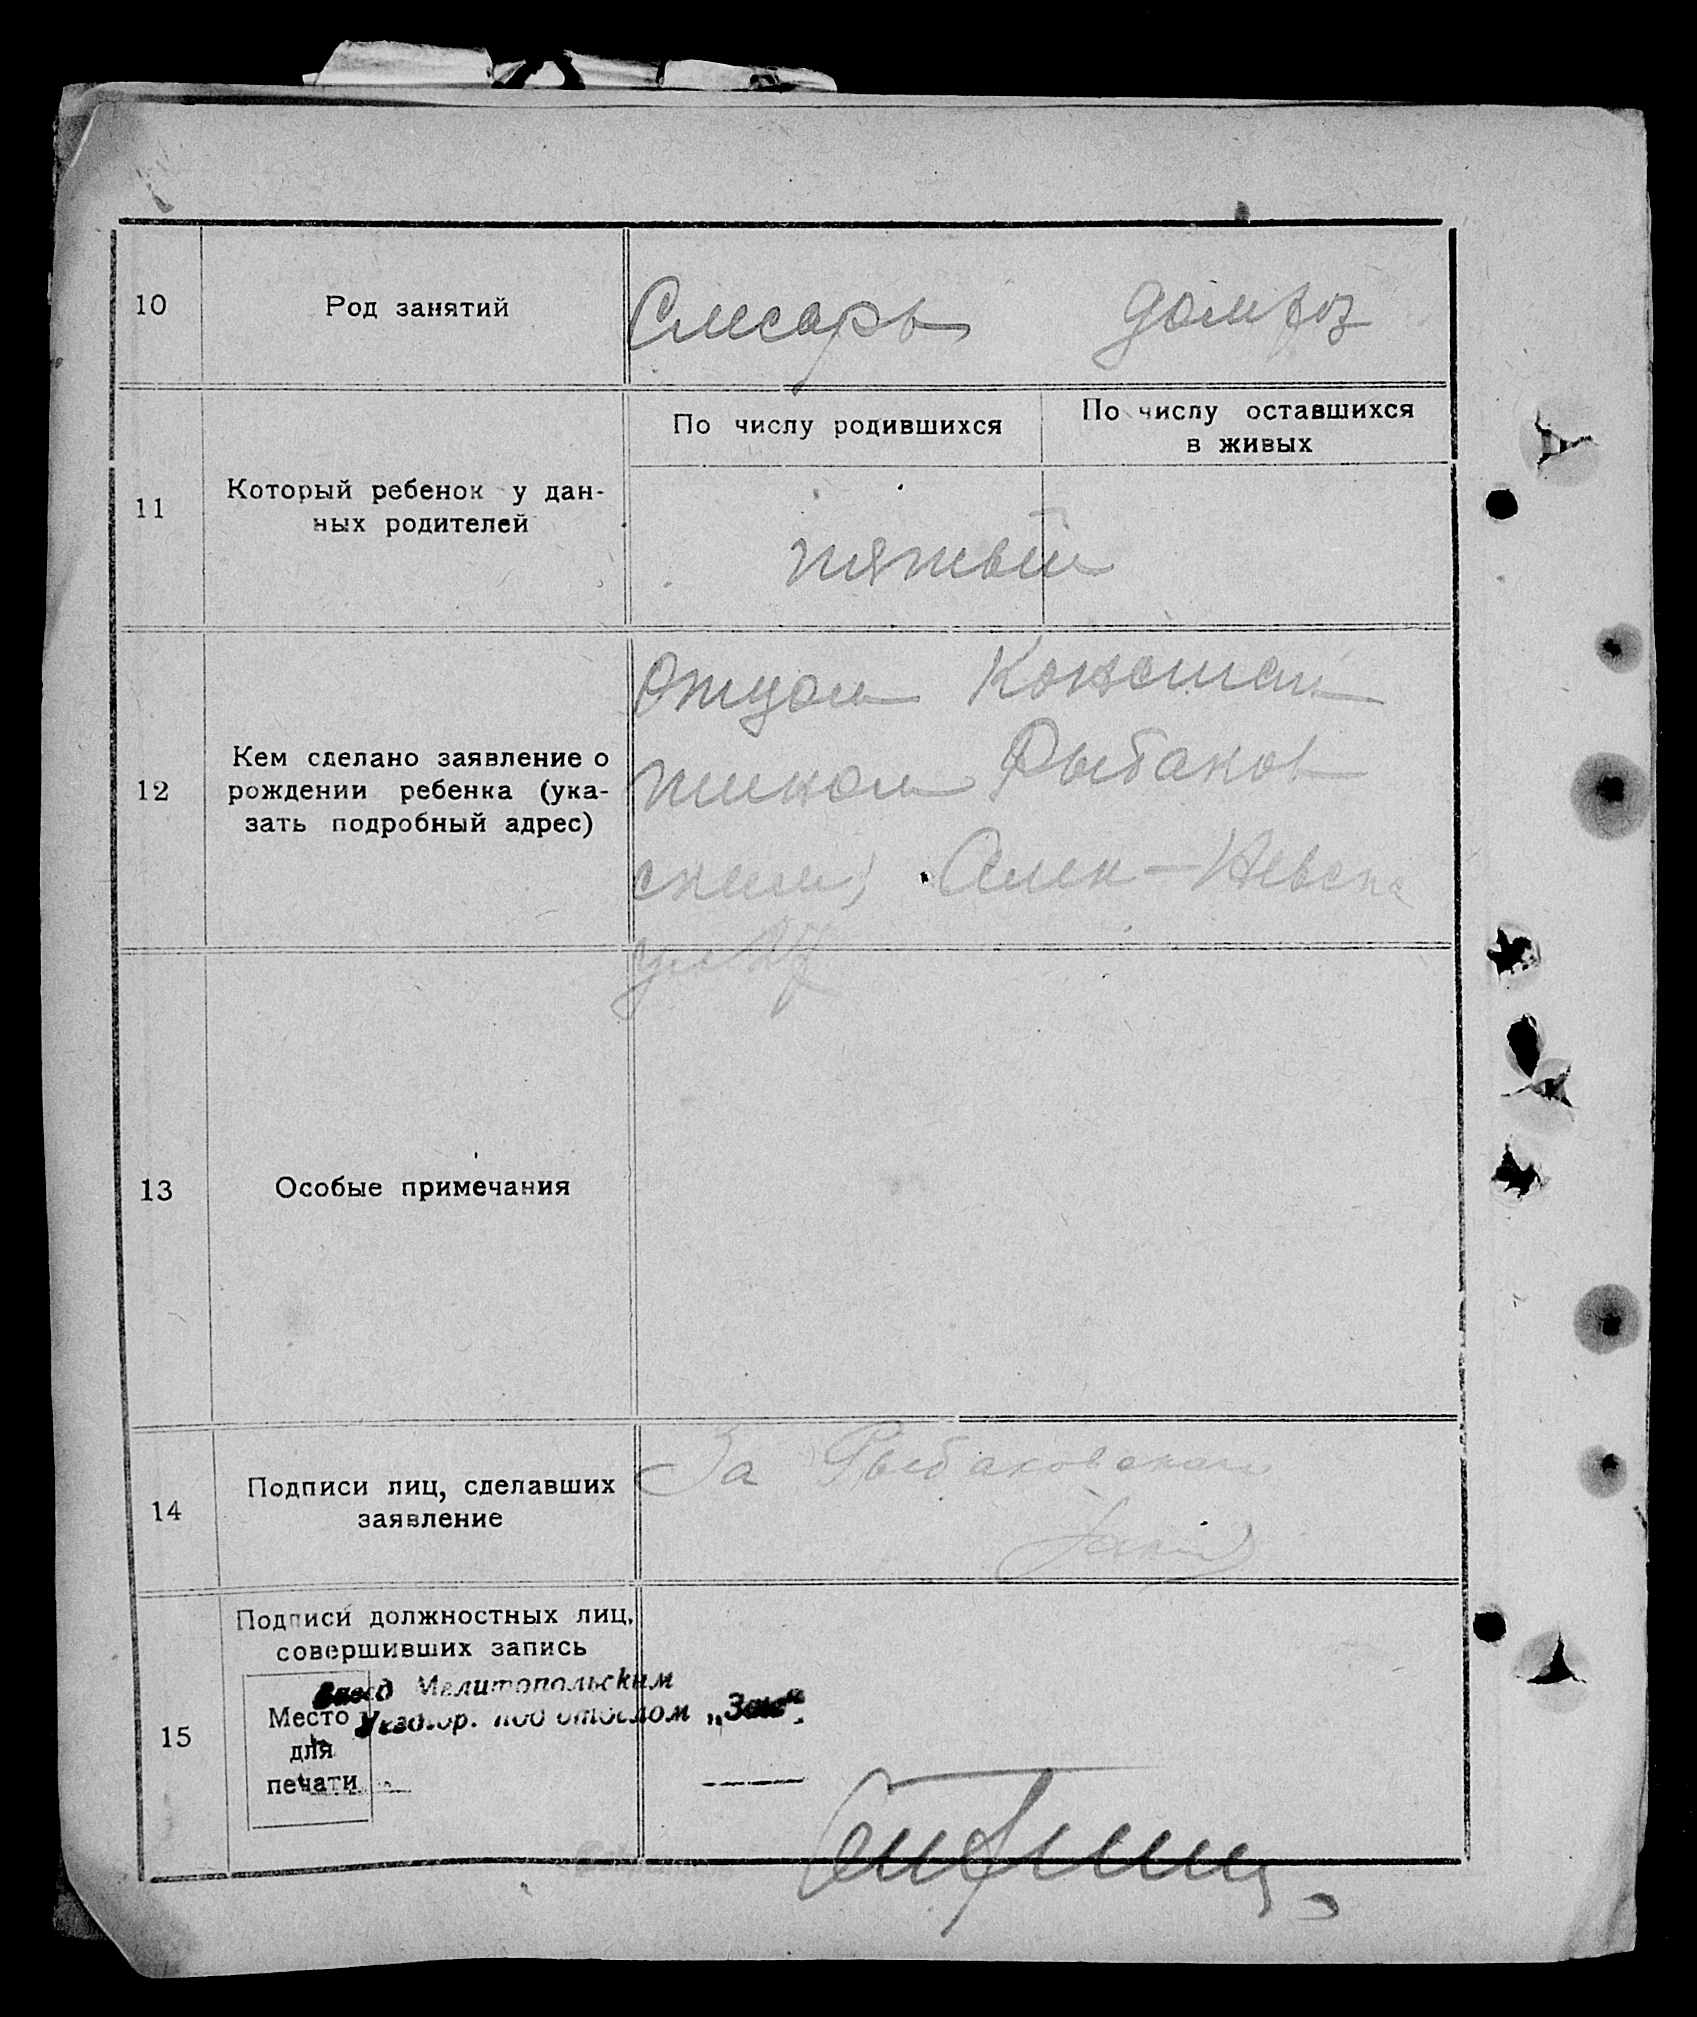 10
Род занятий
Слесарь домхоз
11
Который ребенок у дан-
ных родителей
По числу родившихся
По числу оставшихся
в живых
пятый
12
Кем сделано заявление о
рождении ребенка (ука-
зать подробный адрес)
Отцом Констан
тином Рыбаков
ским, Алек-Невска
ул
13
Особые примечания
14
Подписи лиц, сделавших
заявление
За Рыбаковскаго
15
Подписи должностных лиц,
совершивших запись
Мелитопольским
под отделом „Загс“.
Место
для
печати